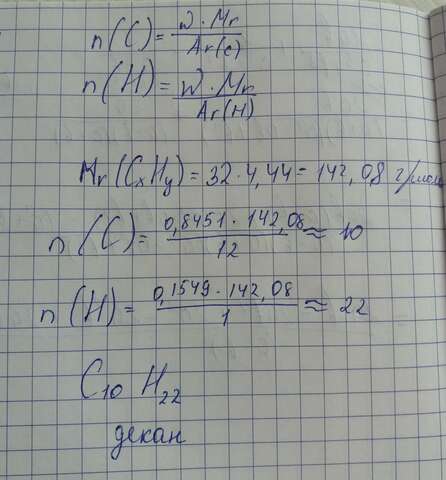 n(C)= w·Mr / Ar(c)
n(H)= w·Mr / Ar(H)
Mr(CxHy)=32·4,44=142,08 г/моль
n(C)= 0,8451·142,08 / 12 ≈ 10
n(H)= 0,1549·142,08 / 1 ≈ 22
C10 H22
декан